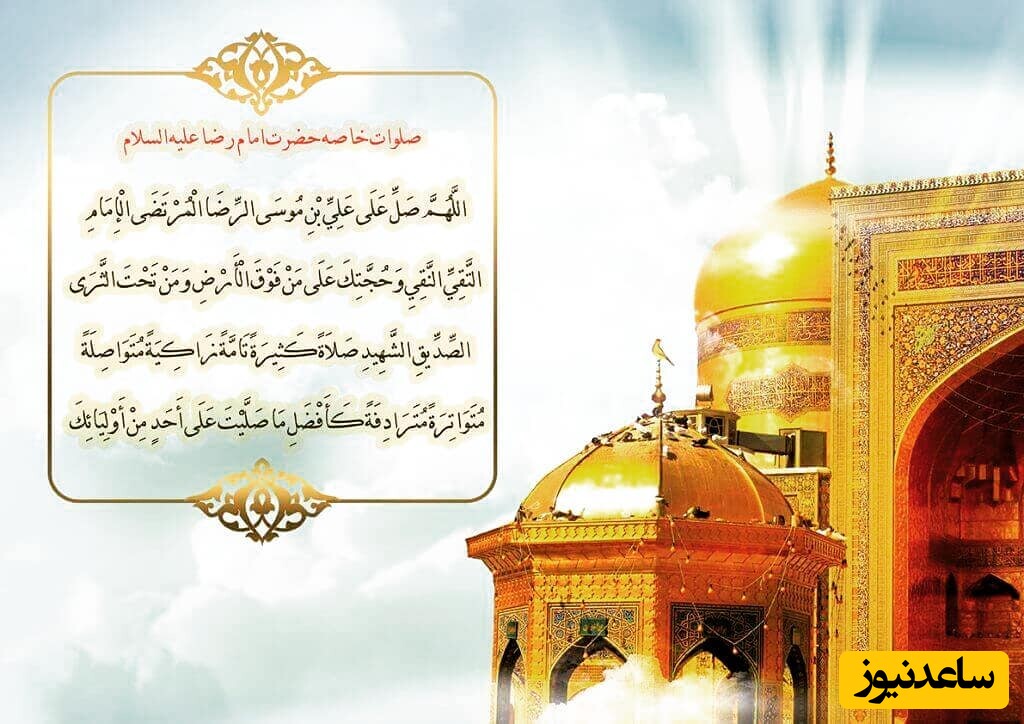 صلوات خاصه حضرت امام رضا علیه السلام
اللَّهُمَّ صَلِّ عَلَى عَلِيِّ بْنِ مُوسَى الرِّضَا الْمُرْتَضَى الْإِمَامِ
التَّقِيِّ النَّقِيِ وَحُجَّتِكَ عَلَى مَنْ فَوْقَ الْأَرْضِ وَمَنْ تَحْتَ الثَّرَى
الصِّدِّيقِ الشَّهِيدِ صَلاَةً كَثِيرَةً تَامَّةً زَاكِيَةً مُتَوَاصِلَةً
مُتَوَاتِرَةً مُتَرَادِفَةً كَأَفْضَلِ مَا صَلَّيْتَ عَلَى أَحَدٍ مِنْ أَوْلِيَائِكَ
ساعدنیوز